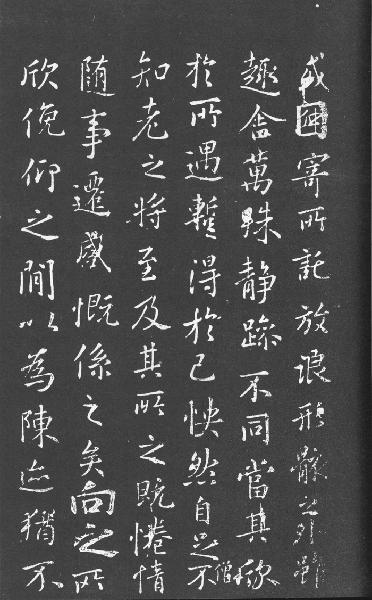 或因寄所託放浪形骸之外雖
趣舍萬殊静躁不同當其欣
於所遇蹔得於己怏然自足不
僧
知老之將至及其所之既惓情
随事遷感慨係之矣向之所
欣俛仰之閒以為陳迹猶不